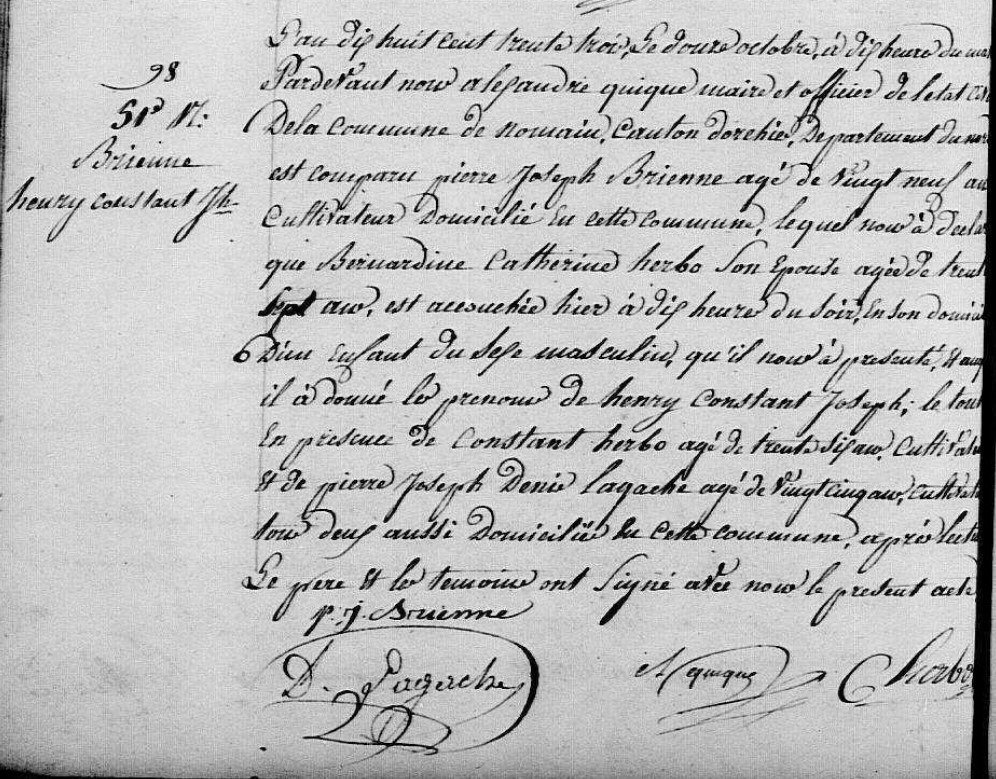 98
51e N:
Brienne
henry constant Jh
L'an dix huit cent trente trois, Le douze octobre, à dix heure du mat
Pardevant nous alexandre quique maire et officier de l'etat civ
Dela commune de nomain, Canton dorchies, Departement du nord
est comparu pierre Joseph Brienne agé de Vingt neuf an
Cultivateur Domicilié En cette commune, lequel nous à declar
que Bernardine Catherine herbo Son Epouse agée de trente
Sept ans, est accouchée hier à dix heure du soir, En son domici
D'un Enfant du sexe masculin, qu'il nous à presenté, & auq
il à donné les prenoms de henry Constant Joseph; le tout
En presence de Constant herbo agé de trente six ans, Cultivate
& de pierre Joseph Denis lagache agé de Vingt cinq ans, cultivate
tous deux aussi Domiciliés En cette commune, après lectu
Le pere & les temoins ont Signé avec nous le present acte
p. j. Brienne
D. Lagache
Al quique
C herbo